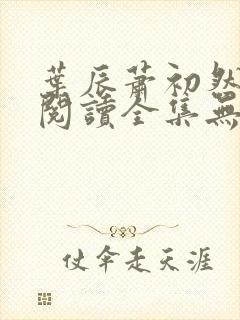 葉辰蕭初然
閱讀全集無
仗傘走天涯